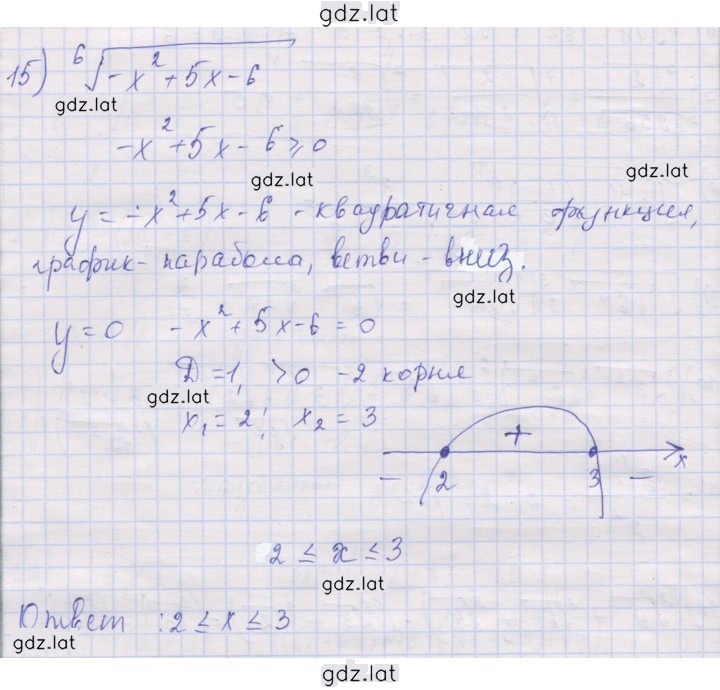 gdz.lat
15) ⁶√(-x²+5x-6)
gdz.lat
-x²+5x-6⩾0
gdz.lat
gdz.lat
y=-x²+5x-6 - квадратичная функция,
график - парабола, ветви - вниз.
gdz.lat
y=0 -x²+5x-6=0
D=1, >0 -2 корня
gdz.lat
x₁=2; x₂=3
+
x
- 2 3 -
2 ≤ x ≤ 3
gdz.lat
Ответ : 2 ≤ x ≤ 3
gdz.lat
gdz.lat